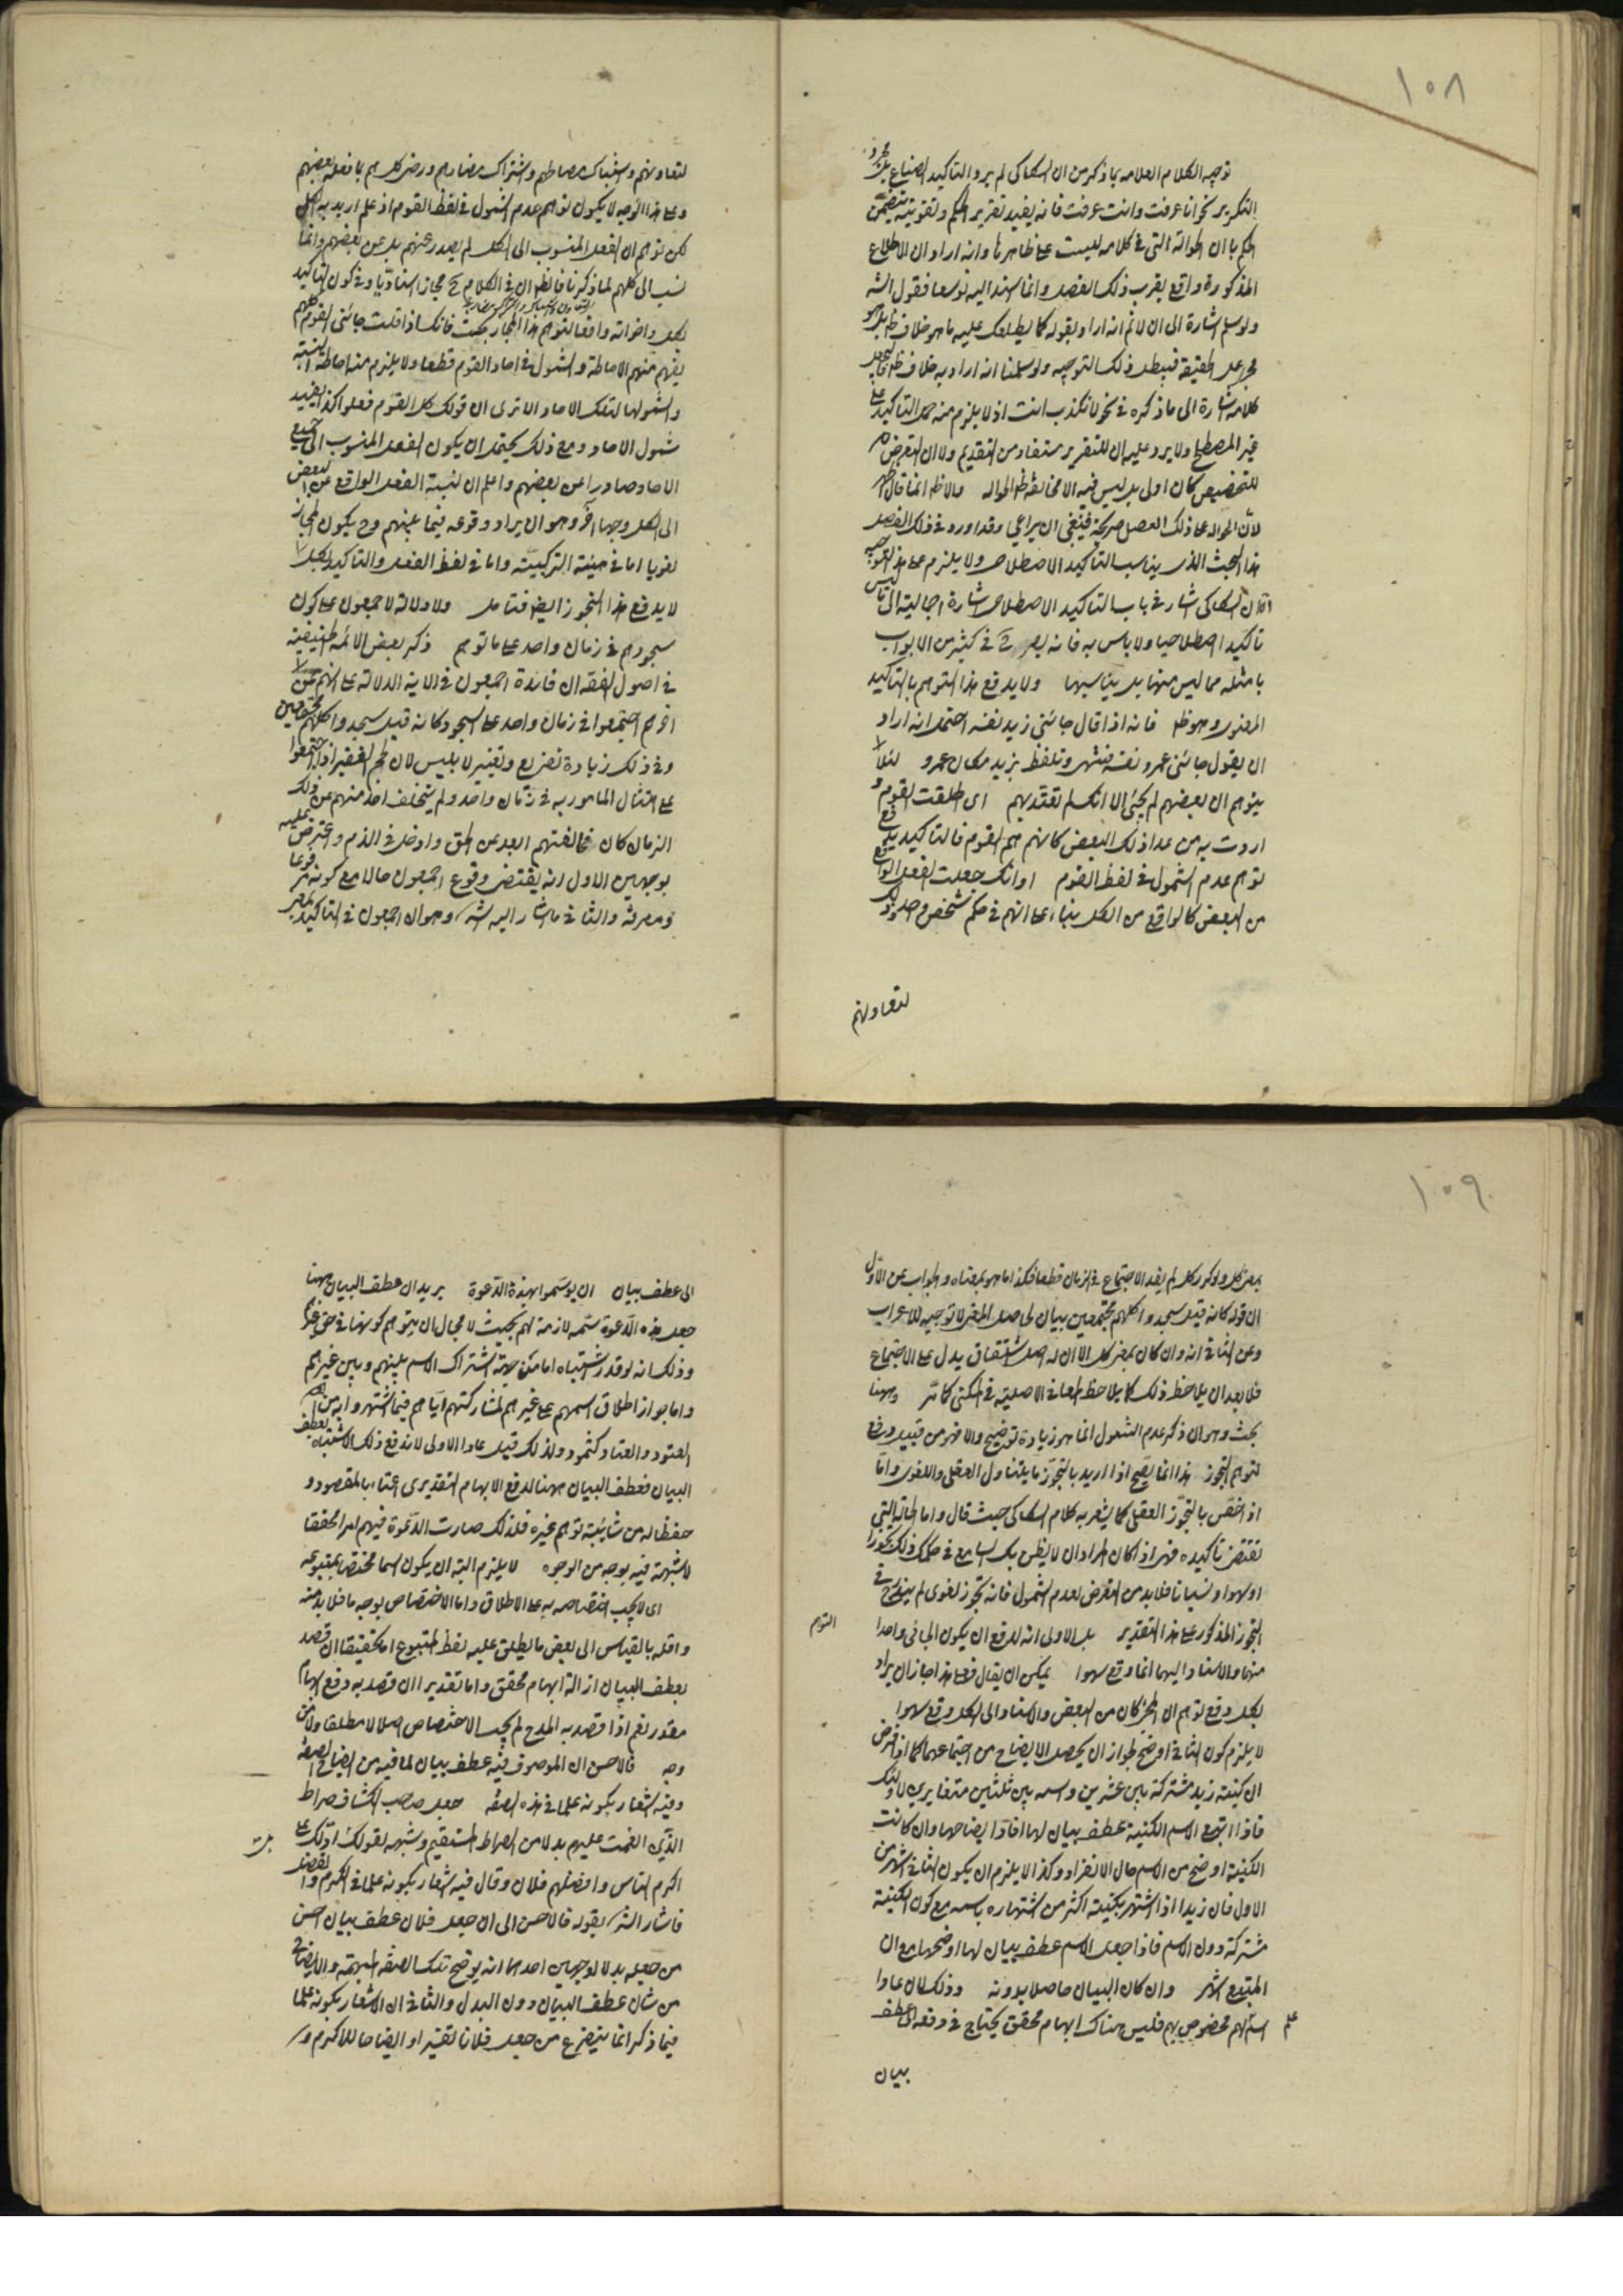 ١٠٨
توجيه الكلام العلامة بما ذكر من ان السكاكى لم يرد التاكيد الصناعى بل مجرد
التكرير نحو انا عرفت وانت عرفت فانه يفيد تقرير الحكم وتقويته
بان الحوالة التى فى كلامه ليست على ظاهرها وانه اراد ان
المذكورة واقع بقرب ذلك الفصل وانما اسند اليه توسعا فقول الشه
ولو سلم اشارة الى ان لا ثم انه اراد بقوله كما يطلعك عليه ما هو خلاف
على الحقيقة فيبطل ذلك التوجيه ولو سلمنا انه اراد به خلاف
كلامه اشارة الى ما ذكره فى نحو لا تكذب انت اذ لا يلزم منه حمل التاكيد على
غير المصطلح ولا يرد عليه ان التقرير مستفاد من التقديم ولا ان التعرض
للتخصيص كان اولى بل ليس فيه الا مخالفة الحوالة
لان الحوالة على ذلك الفصل صريحة فينبغى ان يراعى وقد اورد فى ذلك الفصل
هذا البحث الذى يناسب التاكيد الاصطلاحى ولا يلزم على هذا التوجيه
السكاكى اشار فى باب التاكيد الاصطلاحى اشارة اجمالية الى ما ليس
تاكيدا اصطلاحيا ولا باس به فانه يصرح فى كثير من الابواب
بامثلة مما ليس منها بل يناسبها ولا يدفع هذا التوهم بالتاكيد
المعنوى وهو ظ فانه اذا قال جاءنى زيد نفسه احتمل انه اراد
ان يقول جاءنى عمرو نفسه فسهى وتلفظ بزيد مكان عمرو لئلا
يتوهم ان بعضهم لم يجئ الا انك لم تعتد بهم اى اطلقت القوم و
اردت به من عدا ذلك البعض كانهم هم القوم فالتاكيد يدفع
توهم عدم الشمول فى لفظ القوم او انك جعلت الفعل الواقع
من البعض كالواقع من الكل بناء على انهم فى حكم شخص واحد وذلك
لتعاونهم
لتعاونهم واشتباك مصالحهم واشتراك مضارهم ورضى كلهم بما فعله بعضهم
وعلى هذا الوجه لا يكون توهم عدم الشمول فى لفظ القوم اذ علم اريد به الكل
لكن توهم ان الفعل المنسوب الى الكل لم يصدر عنهم بل عن بعضهم وانما
نسب الى كلهم لما ذكرنا فانظر ان فى الكلام ح مجازا اسناديا وفى كون التاكيد
بكل واخواته دافعا لتوهم هذا المجاز بحث فانك اذا قلت جاءنى القوم كلهم
يفهم منهم الاحاطة والشمول فى احاد القوم قطعا ولا يلزم منه احاطة النسبة
وشمولها لتلك الاحاد الا ترى ان قولك كل القوم فعلوا كذا يفيد
شمول الاحاد ومع ذلك يحتمل ان يكون الفعل المنسوب الى جميع
الاحاد صادرا عن بعضهم واعلم ان لنسبة الفعل الواقع عن البعض
الى الكل وجها آخر وهو ان يراد وقوعه فيما بينهم وح يكون المجاز
لغويا اما فى هيئة التركيبية واما فى لفظ الفعل والتاكيد بكل
لا يدفع هذا التجوز ايضا فتامل ولا دلالة لاجمعون على كون
سجودهم فى زمان واحد على ما توهم ذكر بعض الائمة الحنفية
فى اصول الفقه ان فائدة اجمعون فى الاية الدلالة على انهم
اجتمعوا فى زمان واحد على السجود وكانه قيل سجدوا كلهم مجتمعين
وفى ذلك زيادة تقريع وتعيير لابليس لان الجم الغفير اذا اجتمعوا
على امتثال المامور به فى زمان واحد ولم يتخلف احد منهم عن ذلك
الزمان كان مخالفتهم ابعد عن الحق وادخل فى الذم واعترض عليه
بوجهين الاول انه يقتضى وقوع اجمعون حالا مع كونه مرفوعا
ومعرفة والثانى ما اشار اليه الشه وهو ان اجمعون فى التاكيد بمعنى
١٠٩
بمعنى كل ولو كرر كل لم يفد الاجتماع فى الزمان قطعا فكذا ما هو بمعناه والجواب عن الاول
ان قوله كانه قيل سجدوا كلهم مجتمعين بيان لحاصل المعنى لا توجيه للاعراب
وعن الثانى انه وان كان بمعنى كل الا ان له اصل اشتقاق يدل على الاجتماع
فلا بعد ان يلاحظ ذلك كما يلاحظ المعانى الاصلية فى الكنى كما مر وههنا
بحث وهو ان ذكر عدم الشمول انما هو زيادة توضيح والا فهو من قبيل دفع
توهم التجوز هذا انما يصح اذا اريد بالتجوز ما يتناول العقلى واللغوى واما
اذ اخص بالتجوز العقلى كما يشعر به كلام السكاكى حيث قال واما الحالة التى
تقتضى تاكيده فهو اذا كان المراد ان لا يظن بك السامع فى حكمك ذلك تجوزا
او سهوا او نسيانا فلا بد من التعرض لعدم الشمول فانه تجوز لغوى لم يندرج فى
التجوز المذكور على هذا التقدير بل الاولى انه لدفع ان يكون الجائى واحدا
التوهم
منهما والاسناد اليهما انما وقع سهوا يمكن ان يقال فعلى هذا جاز ان يراد
بكل دفع توهم ان المجئ كان من البعض والاسناد الى الكل وقع سهوا
لا يلزم كون الثانى اوضح لجواز ان يحصل الايضاح من اجتماعهما كما اذا فرض
ان كنيته زيد مشتركة بين عشرين واسمه بين ثلثين متغايرين
فاذا اتبع الاسم الكنية عطف بيان لها افادا ايضاحها وان كانت
الكنية اوضح من الاسم حال الانفراد وكذا لا يلزم ان يكون الثانى اشهر من
الاول فان زيدا اذا اشتهر بكنيته اكثر من اشتهاره باسمه مع كون الكنية
مشتركة دون الاسم فاذا جعل الاسم عطف بيان لها اوضحها مع ان
المتبوع اشهر وان كان البيان حاصلا بدونه وذلك لان عادا
علم
اسم لهم مخصوص بهم فليس هناك ابهام محقق يحتاج فى دفعه الى عطف
بيان
الى عطف بيان ان يوسموا بهذه الدعوة يريد ان عطف البيان ههنا
جعل هذه الدعوة سمة لازمة لهم بحيث لا مجال ان يتوهم كونها فى حق غيرهم
وذلك انه لو قدر اشتباه اما من جهة اشتراك الاسم بينهم وبين غيرهم
واما بجواز اطلاق اسمهم على غيرهم لمشاركتهم اياهم فيما اشتهروا به من
العتو والعناد كثمود ولذلك قيل عادا الاولى لاندفع ذلك الاشتباه بعطف
البيان فعطف البيان ههنا لدفع الابهام التقديرى اعتناء بالمقصود و
حفظا له من شائبة توهم غيره فلذلك صارت الدعوة فيهم امرا محققا
لا شبهة فيه بوجه من الوجوه لا يلزم البتة ان يكون اسما مختصا بمتبوعه
اى لا يجب اختصاصه به على الاطلاق واما الاختصاص بوجه ما فلا بد منه
واقله بالقياس الى بعض ما يطلق عليه لفظ المتبوع اما تحقيقا ان قصد
بعطف البيان ازالة ابهام محقق واما تقديرا ان قصد به دفع ابهام
مقدر نعم اذا قصد به المدح لم يجب الاختصاص اصلا لا مطلقا ولا من
وجه فالاحسن ان الموصوف فيه عطف بيان لما فيه من ايضاح الصفة
وفيه اشعار بكونه علما فى هذه الصفة جعل صاحب الكشاف صراط
الذين انعمت عليهم بدلا من الصراط المستقيم وشبهه بقولك ادلك على
اكرم الناس وافضلهم فلان وقال فيه اشعار بكونه علما فى الكرم والفضل
فاشار الشه بقوله فالاحسن الى ان جعل فلان عطف بيان احسن
من جعله بدلا لوجهين احدهما انه يوضح تلك الصفة المبهمة والايضاح
من شان عطف البيان دون البدل والثانى ان الاشعار بكونه علما
فيما ذكر انما يتفرع من جعل فلانا تفسيرا وايضاحا للاكرم و